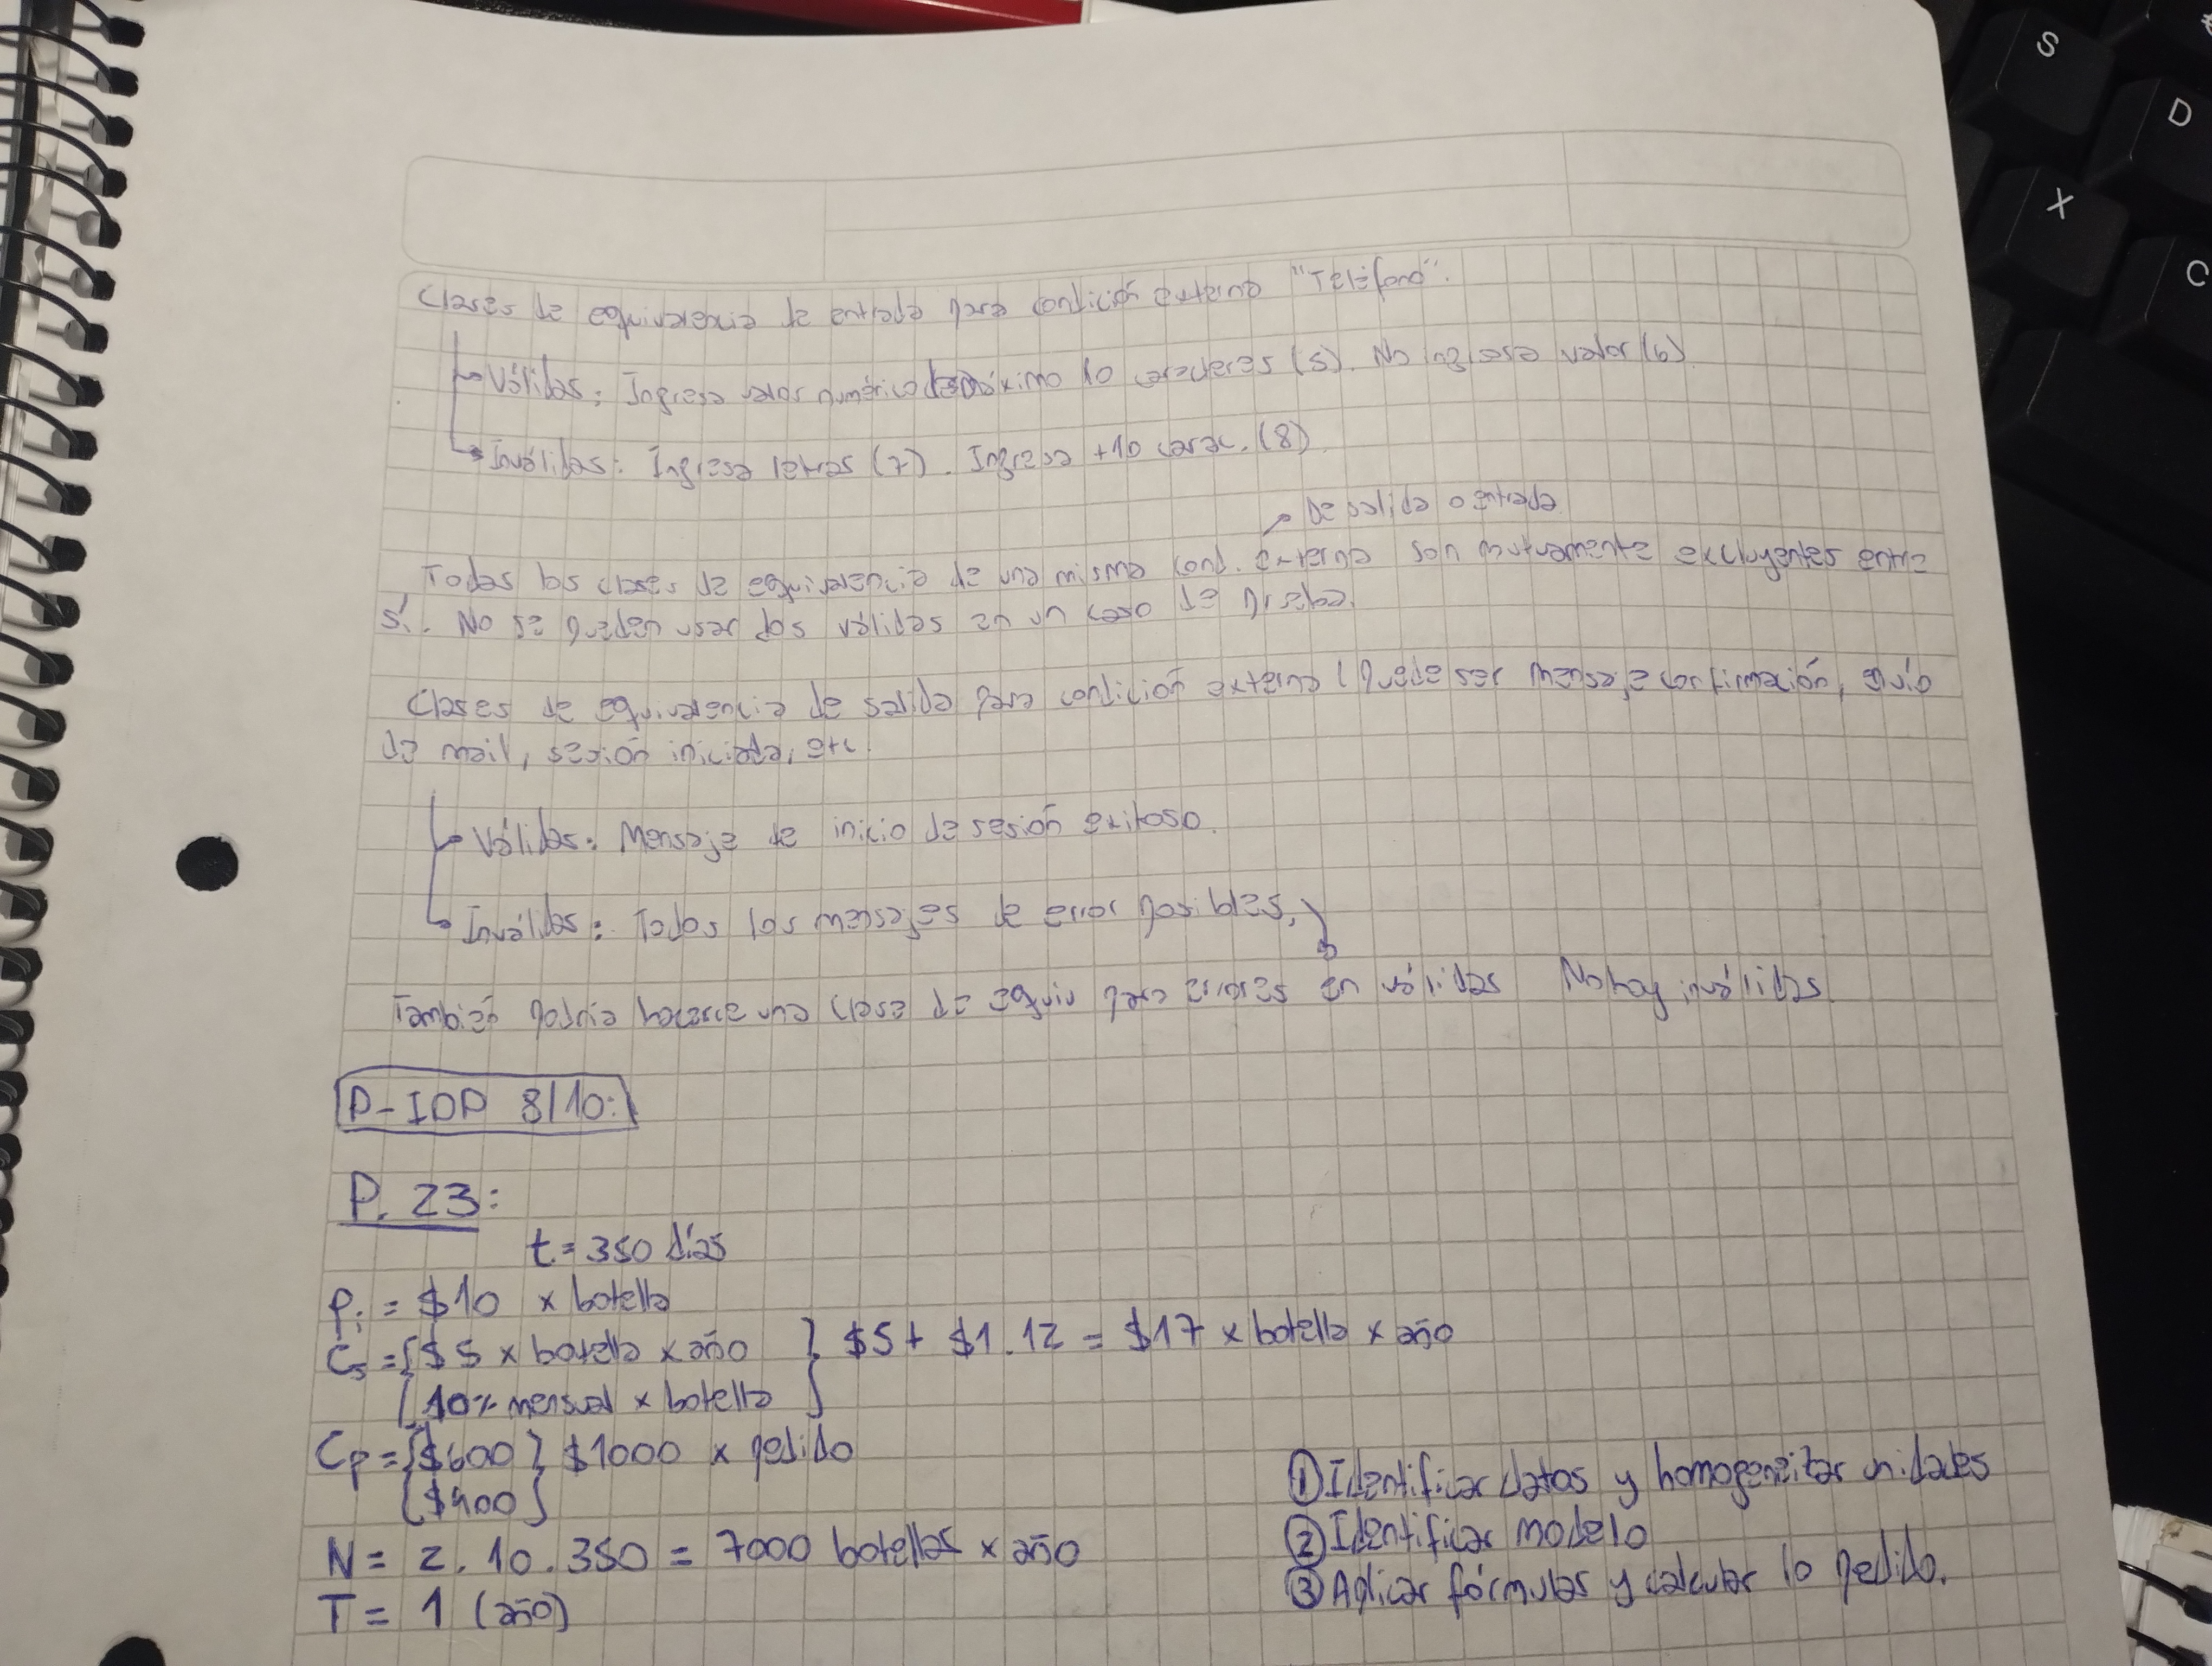 Clases de equivalencia de entrada para condición externa "Teléfono".
Válidas: Ingresa valor numérico de máximo 10 caracteres (5). No ingresa valor (6)
Inválidas: Ingresa letras (7). Ingresa +10 carac. (8)
De salida o entrada
Todas las clases de equivalencia de una misma cond. externa son mutuamente excluyentes entre
sí. No se pueden usar dos válidas en un caso de prueba.
Clases de equivalencia de salida para condición externa (Puede ser mensaje confirmación, envío
de mail, sesión iniciada, etc.
Válidas: Mensaje de inicio de sesión exitoso.
Inválidas: Todos los mensajes de error posibles.
También podría hacerse una clase de equiv para errores en válidas No hay inválidas.
P-IOP 8/10:
P. 23:
t = 350 días
Pi = $10 x botella
Cs = { $5 x botella x año } $5 + $1.12 = $17 x botella x año
10% mensual x botella
Cp = { $600 } $1000 x pedido
$400
N = 2.10.350 = 7000 botellas x año
T = 1 (año)
① Identificar datos y homogeneizar unidades
② Identificar modelo
③ Aplicar fórmulas y calcular lo pedido.